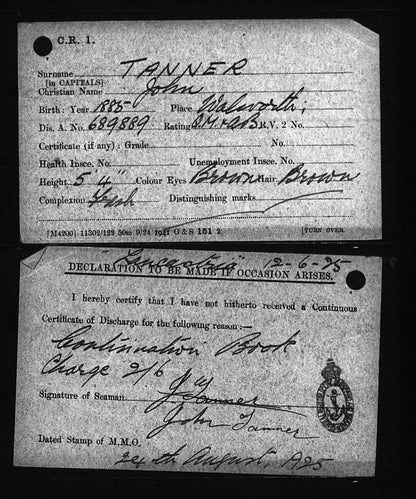 C.R. 1.
Surname TANNER
[in CAPITALS]
Christian Name John
Birth: Year 1885 Place Walworth,
Dis. A. No. 689889 Rating R.V. 2 No.
Certificate (if any): Grade No.
Health Insce. No. Unemployment Insce. No.
Height 5' 4" Colour Eyes Brown Hair Brown
Complexion Fresh Distinguishing marks
[M4200] 11302/122 50m 9/24 G & S 151 2 [TURN OVER
"Lancastria" 12-6-25
DECLARATION TO BE MADE IF OCCASION ARISES.
I hereby certify that I have not hitherto received a Continuous
Certificate of Discharge for the following reason:—
Continuation Book
Charge 2/6
Signature of Seaman J Tanner
John Tanner
Dated Stamp of M.M.O.
24th August, 1925